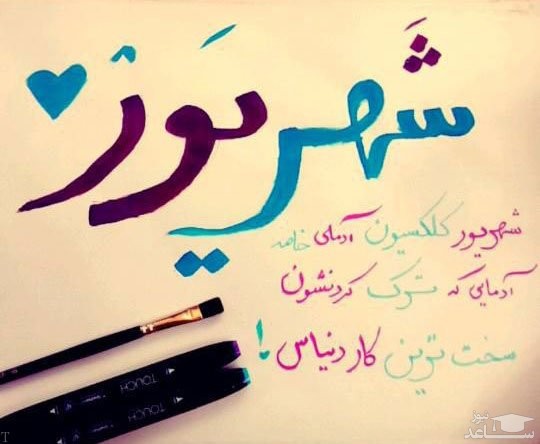 شهریور
شهریور کلکسیون آدمای خاصه
آدمایی که ترک کردنشون
سخت ترین کار دنیاس!
TOUCH
TOUCH
ساعدنیوز